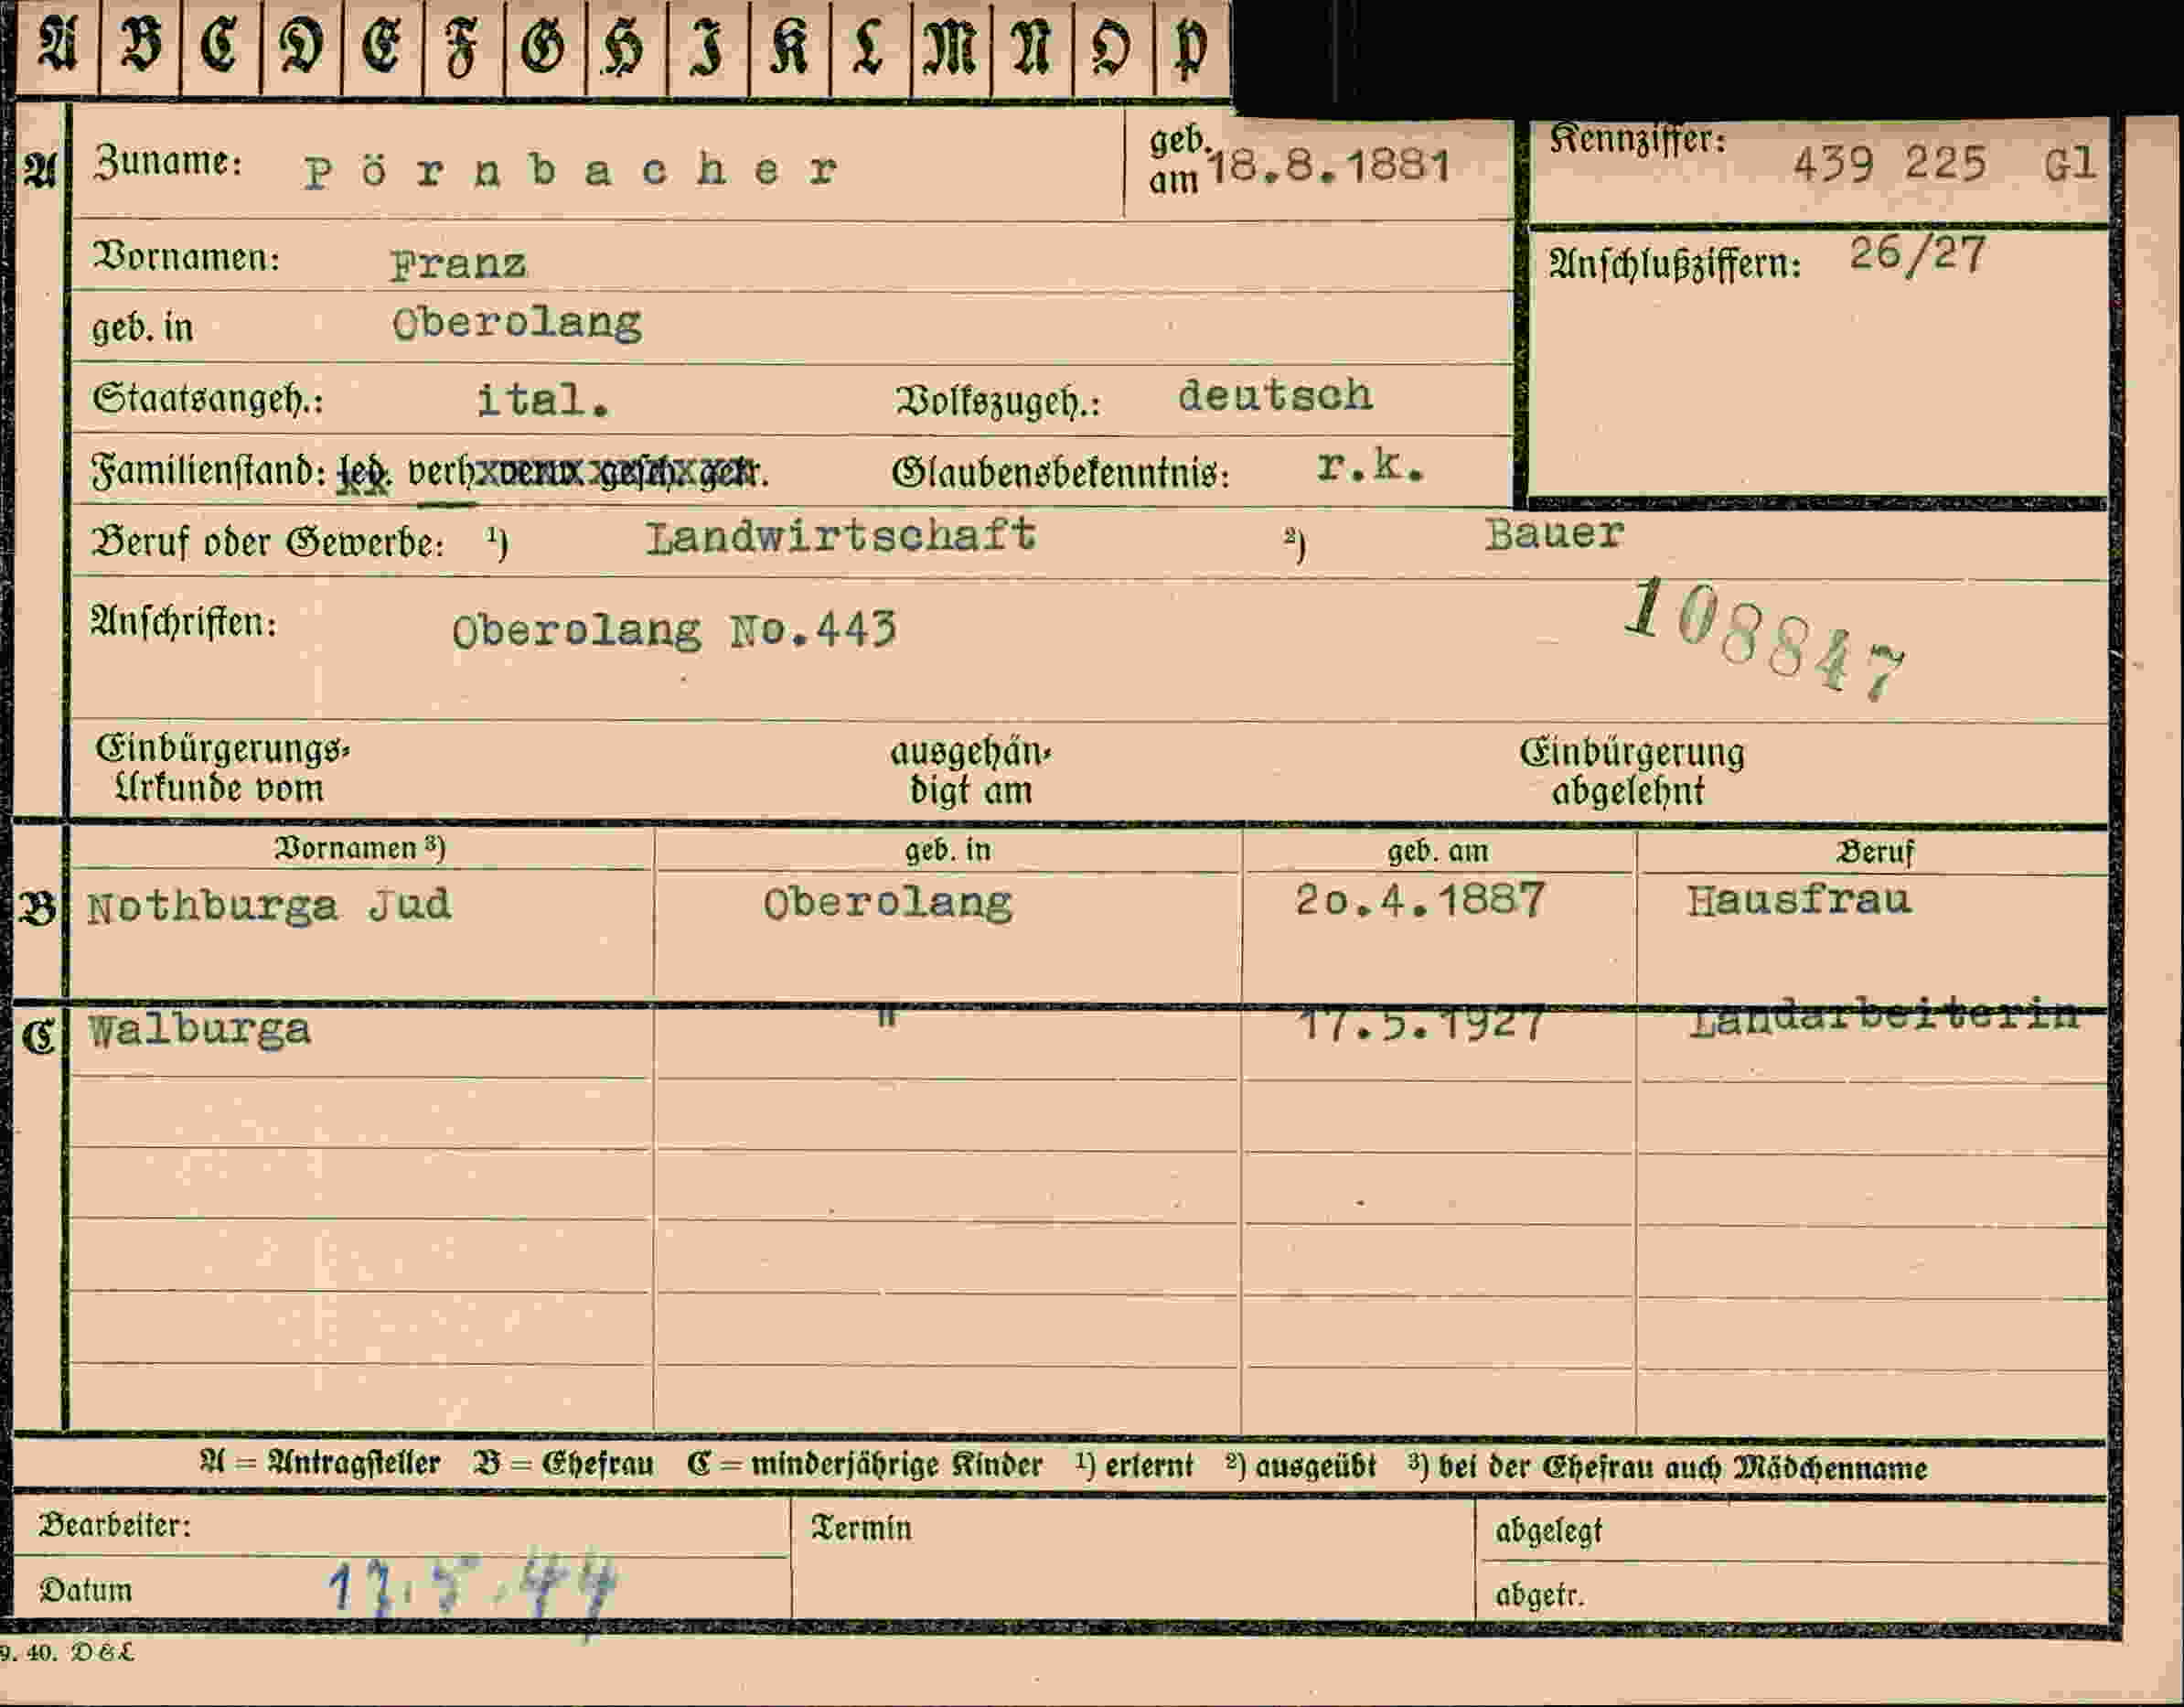 A B C D E F G H I K L M N O P
A Zuname: Pörnbacher geb. am 18.8.1881 Kennziffer: 439 225 Gl
Vornamen: Franz Anschlußziffern: 26/27
geb. in Oberolang
Staatsangeh.: ital. Volkszugeh.: deutsch
Familienstand: led. verh. verw. gesch. getr. Glaubensbekenntnis: r.k.
Beruf oder Gewerbe: ¹) Landwirtschaft ²) Bauer
Anschriften: Oberolang No.443
108847
Einbürgerungs- ausgehän- Einbürgerung
Urkunde vom digt am abgelehnt
Vornamen ³) geb. in geb. am Beruf
B Nothburga Jud Oberolang 20.4.1887 Hausfrau
C Walburga " 17.5.1927 Landarbeiterin
A = Antragsteller B = Ehefrau C = minderjährige Kinder ¹) erlernt ²) ausgeübt ³) bei der Ehefrau auch Mädchenname
Bearbeiter: Termin abgelegt
Datum abgetr.
9. 40. D & L